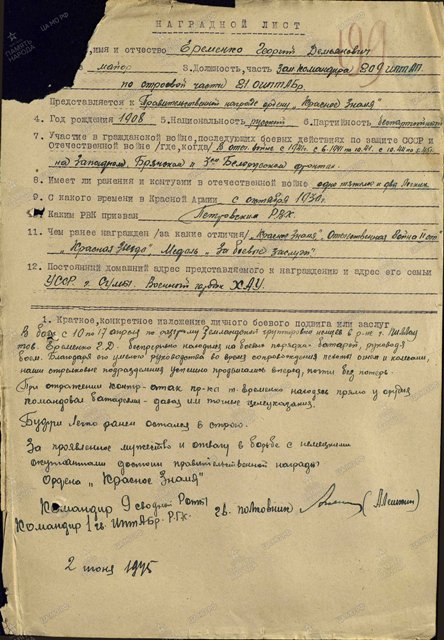 НАГРАДНОЙ ЛИСТ
199
имя и отчество Еременко Георгий Демьянович
майор 3.Должность,часть Зам.командира 209 иптап
по строевой части 21 оиптабр.
Представляется к Правительственной награде ордену "Красное Знамя"
4. Год рождения 1908 5.Национальность русский 6.Партийность беспартийный
7. Участие в гражданской войне,последующих боевых действиях по защите СССР и
Отечественной войне /где,когда/ В отеч. войне с
на Западном, Брянском и Белорусском фронтах
8. Имеет ли ранения и контузии в отечественной войне одно тяжело и два легких
9. С какого времени в Красной Армии с октября 1930г.
Каким РВК призван Петровским РВК
11. Чем ранее награжден /за какие отличия/ "Красное Знамя", "Отечественная война II ст"
"Красная Звезда" Медаль "За боевые заслуги".
12. Постоянный домашний адрес представляемого к награждению и адрес его семьи
УССР г. Сумы. Военный городок ХАУ
1. Краткое,конкретное изложение личного боевого подвига или заслуг
В боях с 10 по 17 апреля по разгрому Земландской группировки немцев в р-не г. Пиллау
тов. Еременко Г.Д. беспрерывно находился на боевых порядках батарей, руководя
боем. Благодаря его умелого руководства во время сопровождения пехоты огнем и колесами,
наши стрелковые подразделения успешно продвигались вперед, почти без потерь.
При отражении контр-атак пр-ка т. Еременко находясь прямо у орудия
командовал батареями - давая им точные целеуказания.
Будучи легко ранен остался в строю.
За проявленное мужество и отвагу в борьбе с немецкими
оккупантами достоин правительственной награды
Ордена "Красное Знамя"
Командир
Командир 1 гв. ИПТАБр. РГК гв. полковник
2 июня 1945
ПАМЯТЬ НАРОДА
ЦА МО РФ